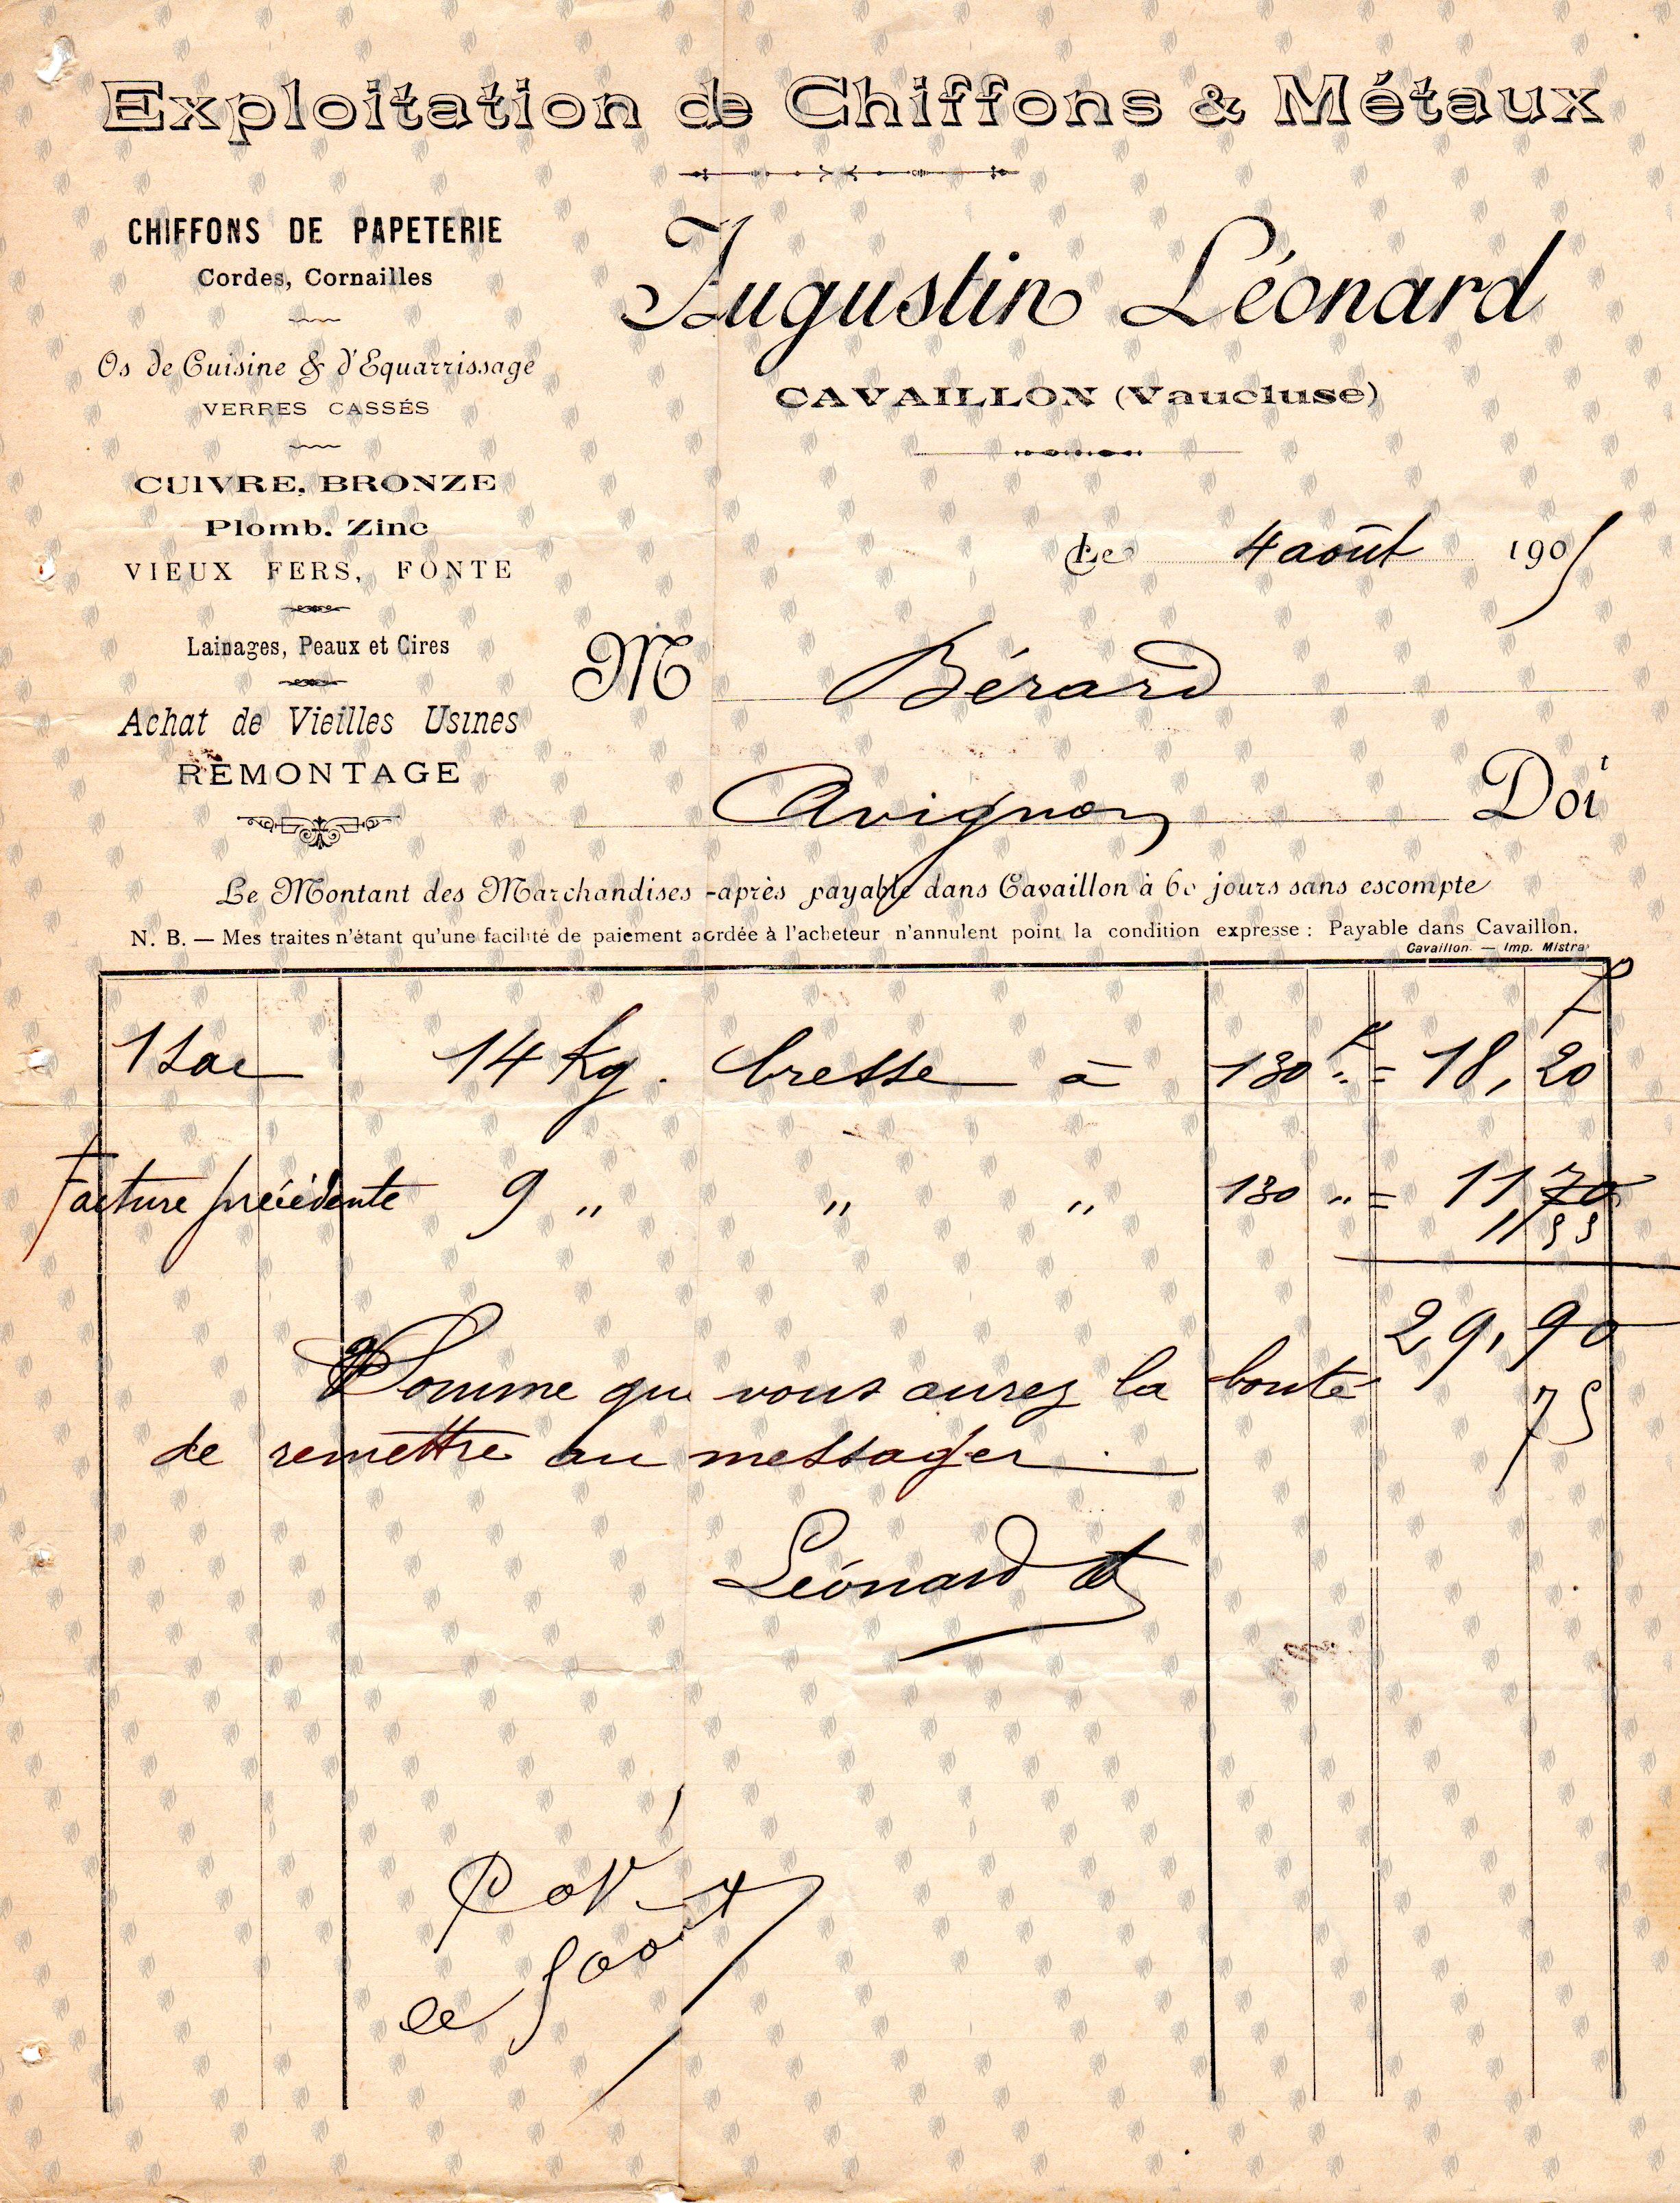 Exploitation de Chiffons & Métaux
CHIFFONS DE PAPETERIE
Cordes, Cornailles
Os de Cuisine & d'Equarrissage
VERRES CASSÉS
CUIVRE, BRONZE
Plomb. Zinc
VIEUX FERS, FONTE
Lainages, Peaux et Cires
Achat de Vieilles Usines
REMONTAGE
Augustin Léonard
CAVAILLON (Vaucluse)
Le 4 août 1905
M Bérard
Avignon Doit
Le Montant des Marchandises -après payable dans Cavaillon à 60 jours sans escompte
N. B. — Mes traites n'étant qu'une facilité de paiement acrdée à l'acheteur n'annulent point la condition expresse : Payable dans Cavaillon.
Cavaillon. — Imp. Mistral
1 sac 14 kg. bresse à 130 = 18,20
Facture précédente 9 " " " 130 " = 11,70
11 55
29,90
75
Somme que vous aurez la bonté
de remettre au messager.
Léonard
le 5 août